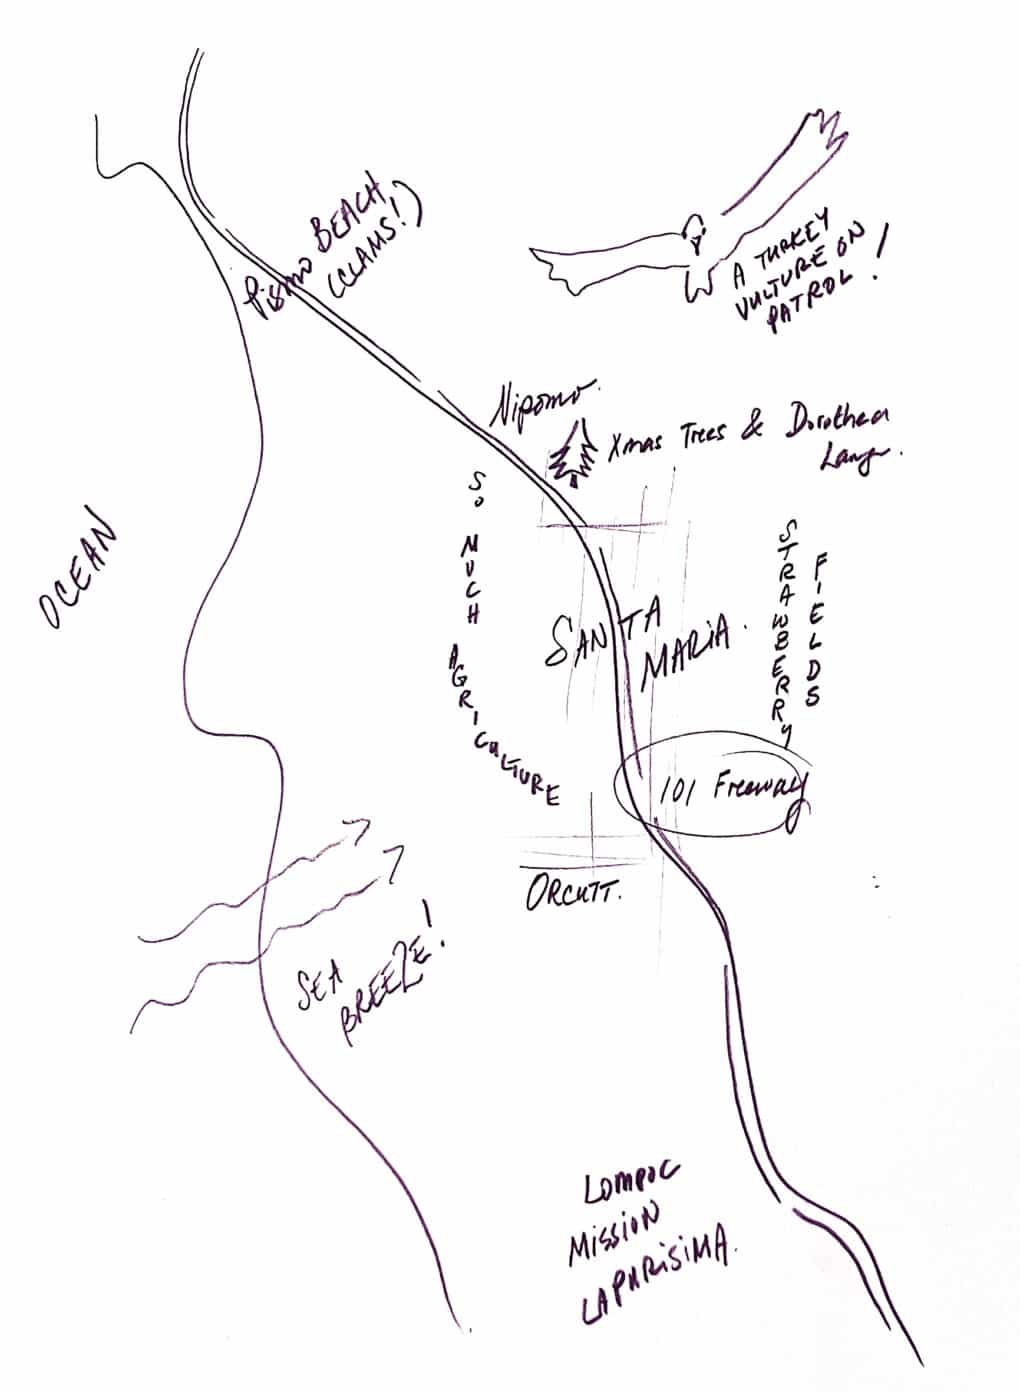 Pismo BEACH
(CLAMS!)
A TURKEY
VULTURE ON
PATROL!
Nipomo.
Xmas Trees & Dorothea
Lange.
OCEAN
SO MUCH AGRICULTURE
STRAWBERRY
FIELDS
SANTA
MARIA.
101 Freeway
ORCUTT.
SEA
BREEZE!
LOMPOC
MISSION
LAPURISIMA.